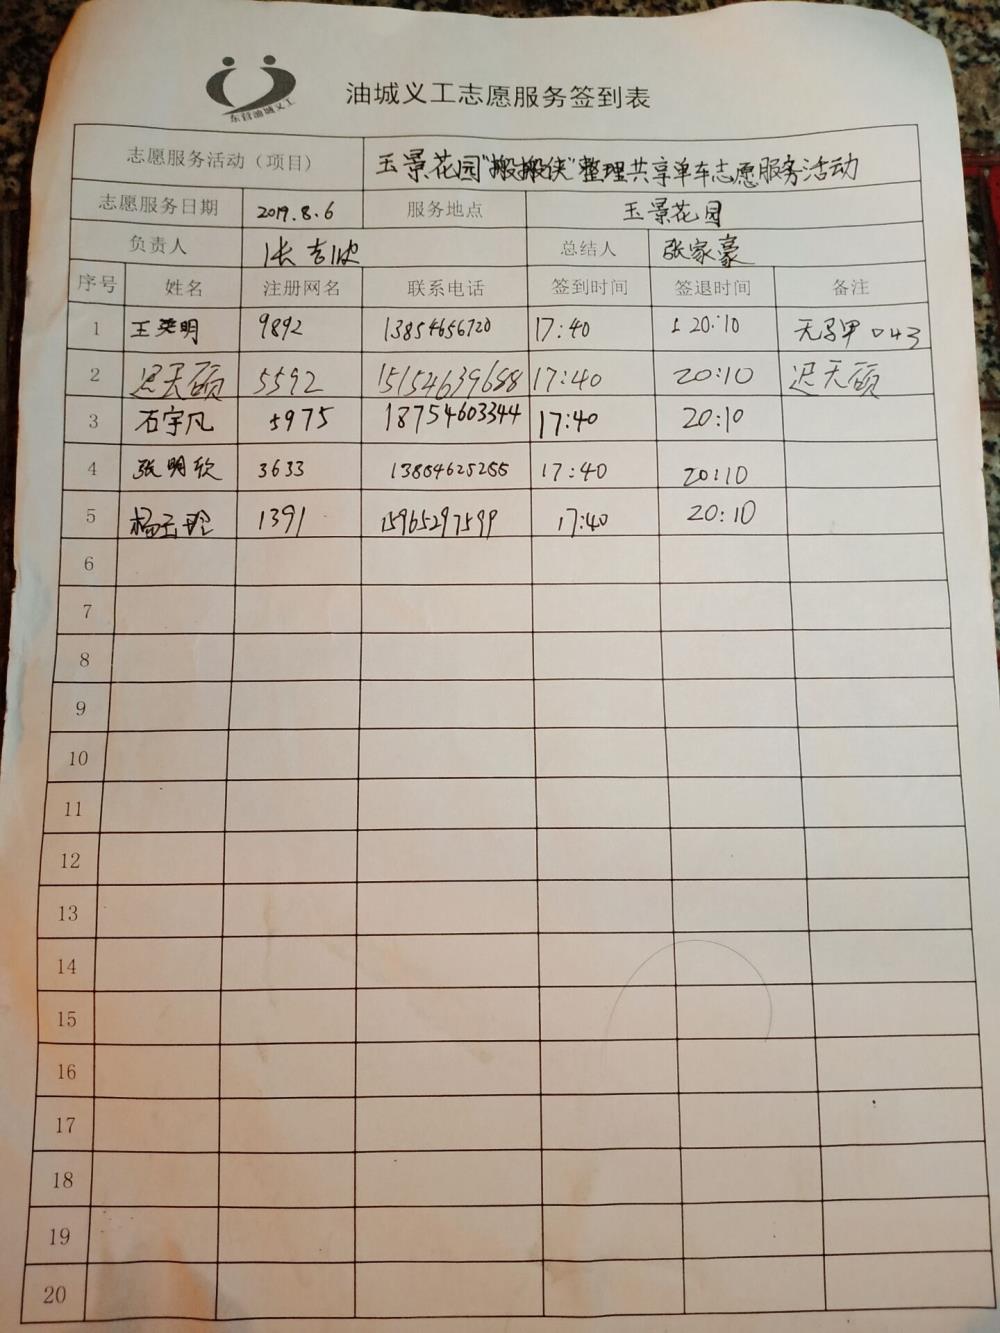 东营油城义工
油城义工志愿服务签到表
志愿服务活动（项目） 玉景花园"搬搬侠"整理共享单车志愿服务活动
志愿服务日期 2019.8.6 服务地点 玉景花园
负责人 张 总结人 张家豪
序号 姓名 注册网名 联系电话 签到时间 签退时间 备注
1 王奕明 9892 13854656720 17:40 20:10
2 迟天硕 5592 15154639688 17:40 20:10 迟天硕
3 石宇凡 5975 18754603344 17:40 20:10
4 张明欣 3633 13854625255 17:40 20:10
5 杨玉玲 1391 15965297599 17:40 20:10
6
7
8
9
10
11
12
13
14
15
16
17
18
19
20